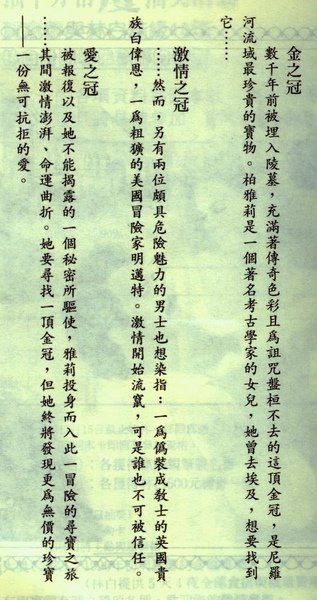 金之冠
數千年前被埋入陵墓，充滿著傳奇色彩且為詛咒盤桓不去的這頂金冠，是尼羅
河流域最珍貴的寶物。柏雅莉是一個著名考古學家的女兒，她曾去埃及，想要找到
它……
激情之冠
……然而，另有兩位頗具危險魅力的男士也想染指：一為偽裝成教士的英國貴
族白偉恩，一為粗獷的美國冒險家明邁特。激情開始流竄，可是誰也不可被信任。
愛之冠
被報復以及她不能揭露的一個秘密所驅使，雅莉投身而入此一冒險的尋寶之旅
……其間激情澎湃、命運曲折。她要尋找一頂金冠，但她終將發現更為無價的珍寶
——一份無可抗拒的愛。